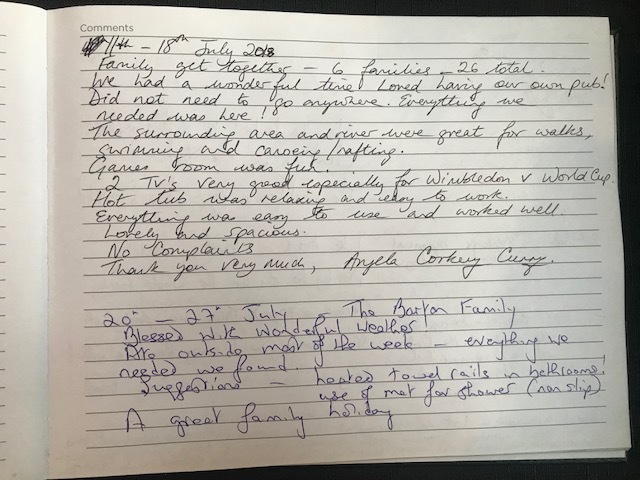 Comments
11th - 18th July 2018
Family get together - 6 families - 26 total.
We had a wonderful time Loved having our own pub!
Did not need to go anywhere. Everything we
needed was here!
The surrounding area and river were great for walks,
swimming and canoeing/rafting.
Games room was fun.
2 TV's very good especially for Wimbledon v World Cup.
Hot tub was relaxing and easy to work.
Everything was easy to use and worked well.
Lovely and spacious.
No Complaints
Thank you very much, Angela Corkery Curry.
20th - 27th July - The Barton Family
Blessed with wonderful weather
Ate outside most of the week - everything we
needed we found.
Suggestions - heated towel rails in bathrooms!
use of mat for shower (non slip)
A great family holiday